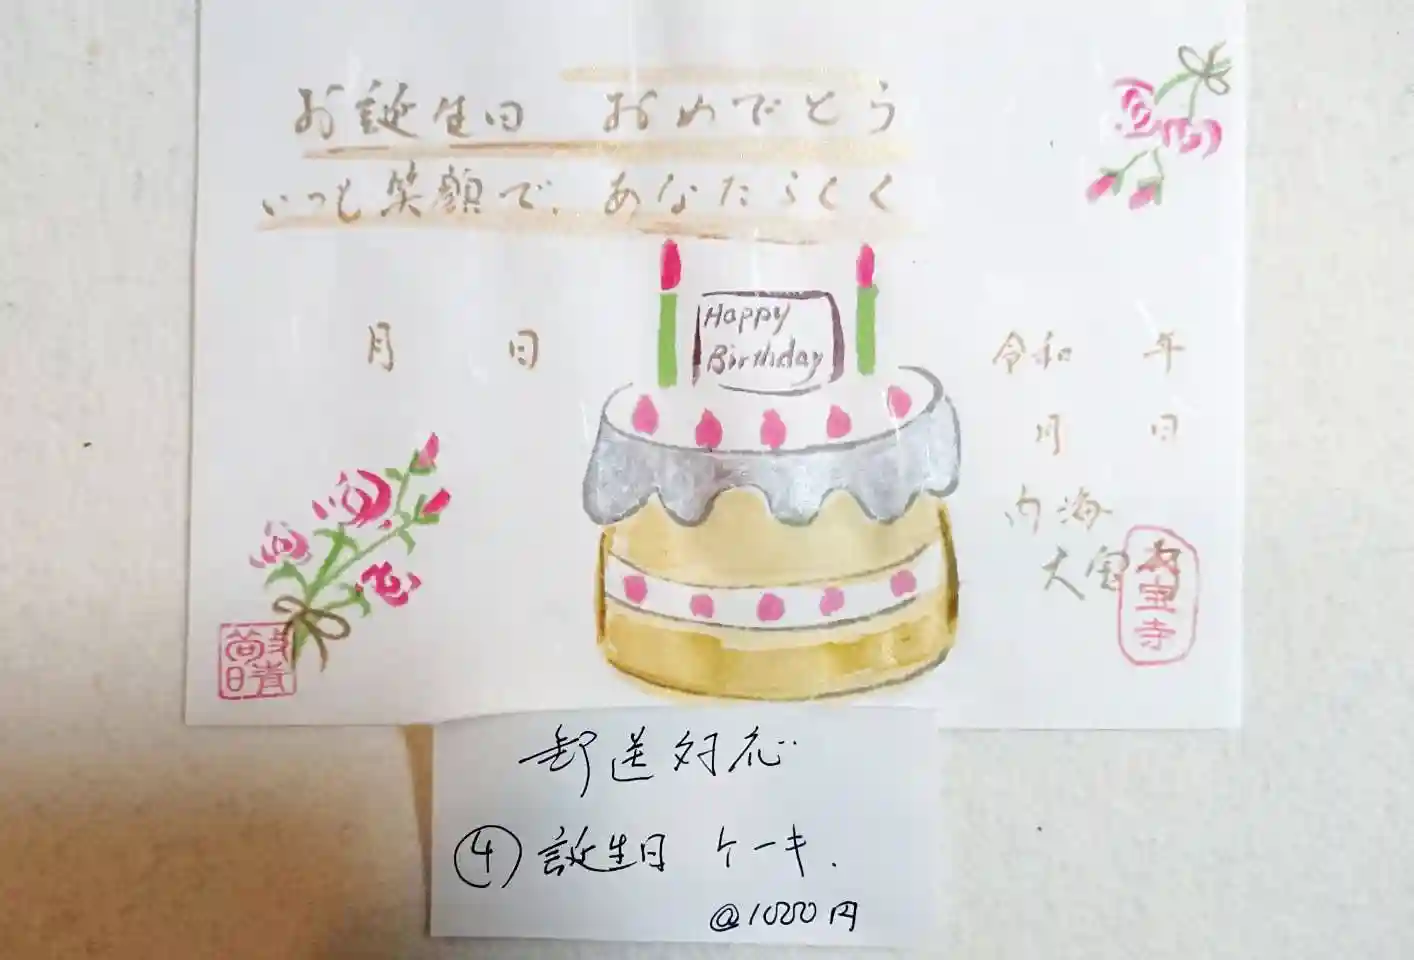 お誕生日 おめでとう
いつも笑顔で、あなたらしく
Happy
Birthday
月 日
令和 年
月 日
内海
大宝寺
大宝寺
郵送対応
④ 誕生日 ケーキ.
@1000円